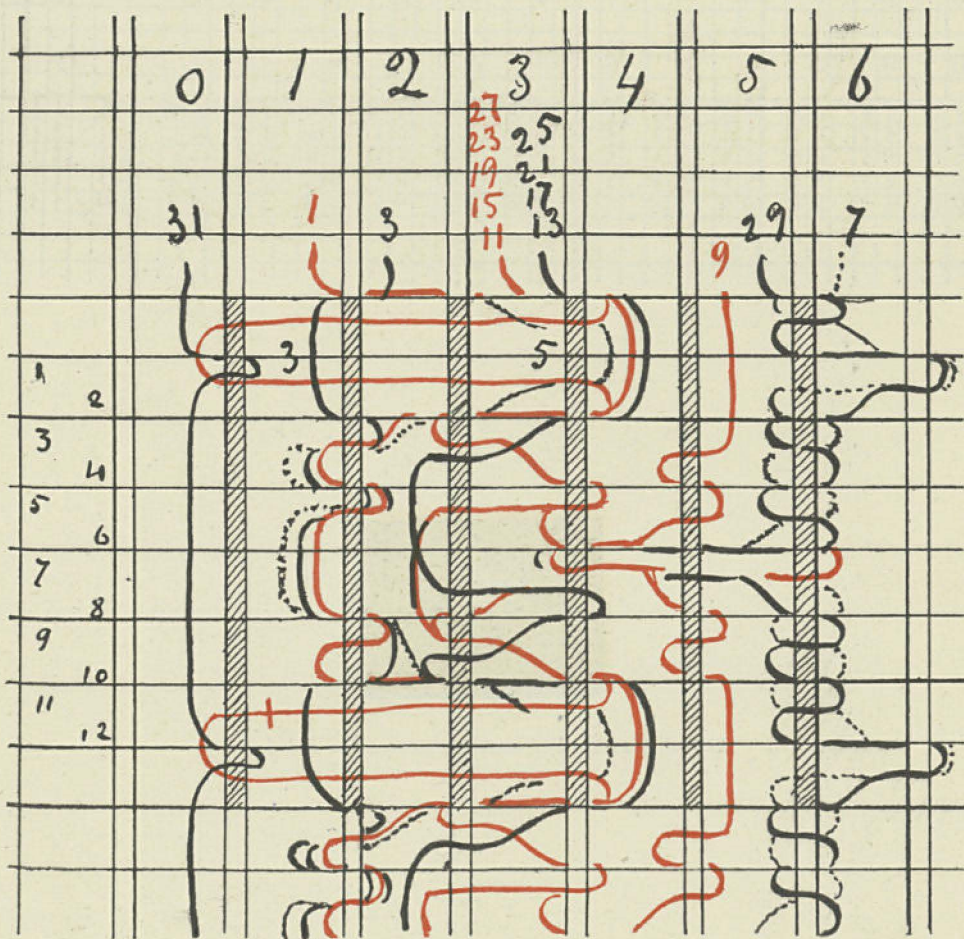 0 1 2 3 4 5 6
27
23 25
19 21
15 17
31 1 3 11 13 9 29 7
3 5
1
2
3
4
5
6
7
8
9
10
11
12